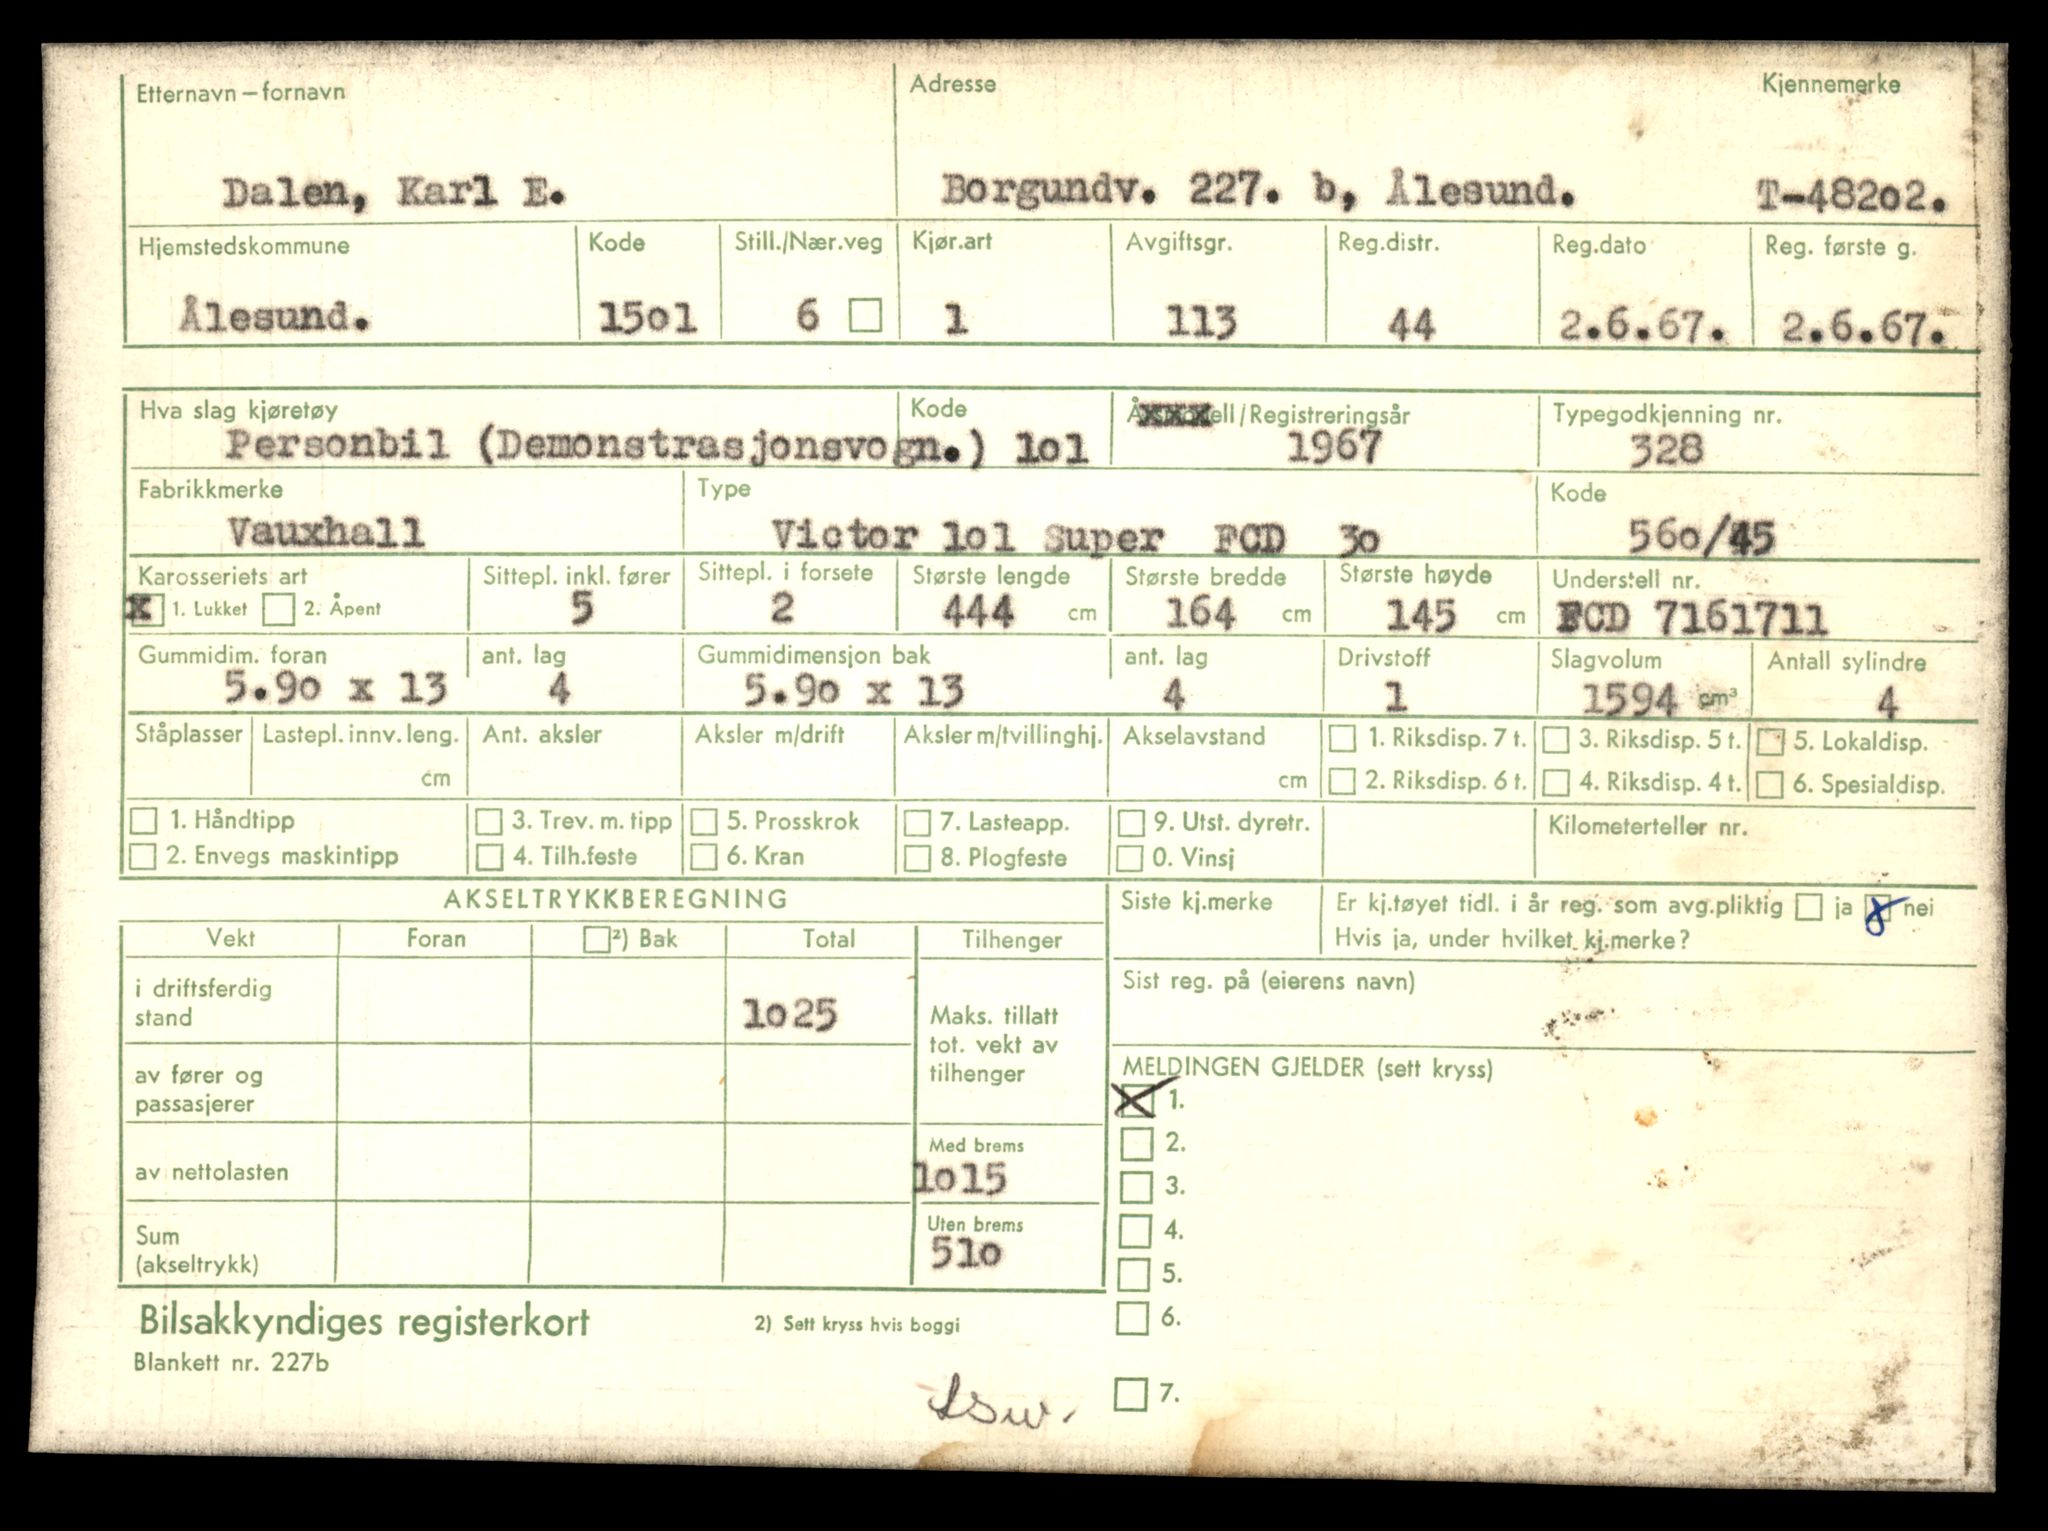 Etternavn – fornavn Adresse Kjennemerke
Dalen, Karl E. Borgundv. 227. b, Ålesund. T-48202.
Hjemstedskommune Kode Still./Nær.veg Kjør.art Avgiftsgr. Reg.distr. Reg.dato Reg. første g.
Ålesund. 15o1 6 1 113 44 2.6.67. 2.6.67.
Hva slag kjøretøy Kode Årsmodell/Registreringsår Typegodkjenning nr.
Personbil (Demonstrasjonsvogn.) 1o1 1967 328
Fabrikkmerke Type Kode
Vauxhall Victor 1o1 Super FCD 3o 56o/45
Karosseriets art Sittepl. inkl. fører Sittepl. i forsete Største lengde Største bredde Største høyde Understell nr.
x 1. Lukket 2. Åpent 5 2 444 cm 164 cm 145 cm FCD 7161711
Gummidim. foran ant. lag Gummidimensjon bak ant. lag Drivstoff Slagvolum Antall sylindre
5.9o x 13 4 5.9o x 13 4 1 1594 cm³ 4
Ståplasser Lastepl. innv. leng. Ant. aksler Aksler m/drift Aksler m/tvillinghj. Akselavstand 1. Riksdisp. 7 t. 3. Riksdisp. 5 t. 5. Lokaldisp.
cm cm 2. Riksdisp. 6 t. 4. Riksdisp. 4 t. 6. Spesialdisp.
1. Håndtipp 3. Trev. m. tipp 5. Prosskrok 7. Lasteapp. 9. Utst. dyretr. Kilometerteller nr.
2. Envegs maskintipp 4. Tilh.feste 6. Kran 8. Plogfeste 0. Vinsj
AKSELTRYKKBEREGNING Siste kj.merke Er kj.tøyet tidl. i år reg. som avg.pliktig ja nei
Vekt Foran ²) Bak Total Tilhenger Hvis ja, under hvilket kj.merke?
i driftsferdig stand 1o25 Maks. tillatt tot. vekt av tilhenger
Sist reg. på (eierens navn)
av fører og passasjerer
MELDINGEN GJELDER (sett kryss)
X 1.
2.
av nettolasten Med brems
1o15
3.
4.
Sum (akseltrykk) Uten brems
51o
5.
6.
Bilsakkyndiges registerkort 2) Sett kryss hvis boggi
Blankett nr. 227b
7.